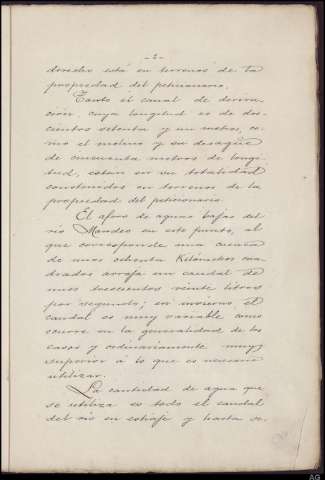 - 2 -
derecha está en terrenos de la
propiedad del peticionario.
Tanto el canal de deriva-
ción cuya longitud es de dos-
cientos setenta y un metros, co-
mo el molino y su desagüe
de cincuenta metros de longi-
tud, estan en su totalidad
construidos en terrenos de la
propiedad del peticionario
El aforo de aguas bajas del
rio Mandeo en este punto, al
que corresponde una cuenca
de unos ochenta Kilómetros cua-
drados arroja un caudal de
unos trescientos veinte litros
por segundo; en invierno el
caudal es muy variable como
ocurre en la generalidad de los
casos y ordinariamente muy
superior á lo que es necesario
utilizar.
La cantidad de agua que
se utiliza es todo el caudal
del rio en estiaje y hasta se-
AG